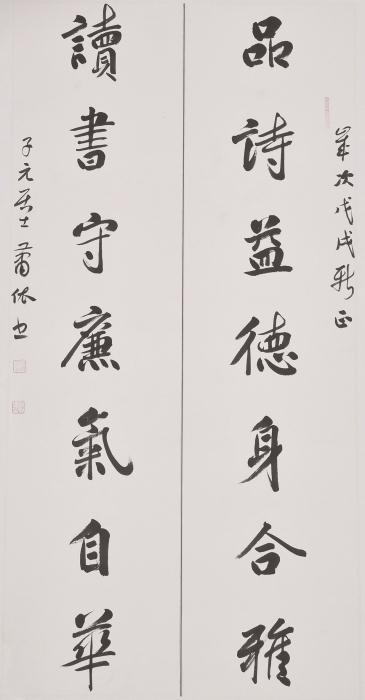 歲次戊戌新正
品詩益德身合雅
讀書守廉氣自華
子元居士蕭依书